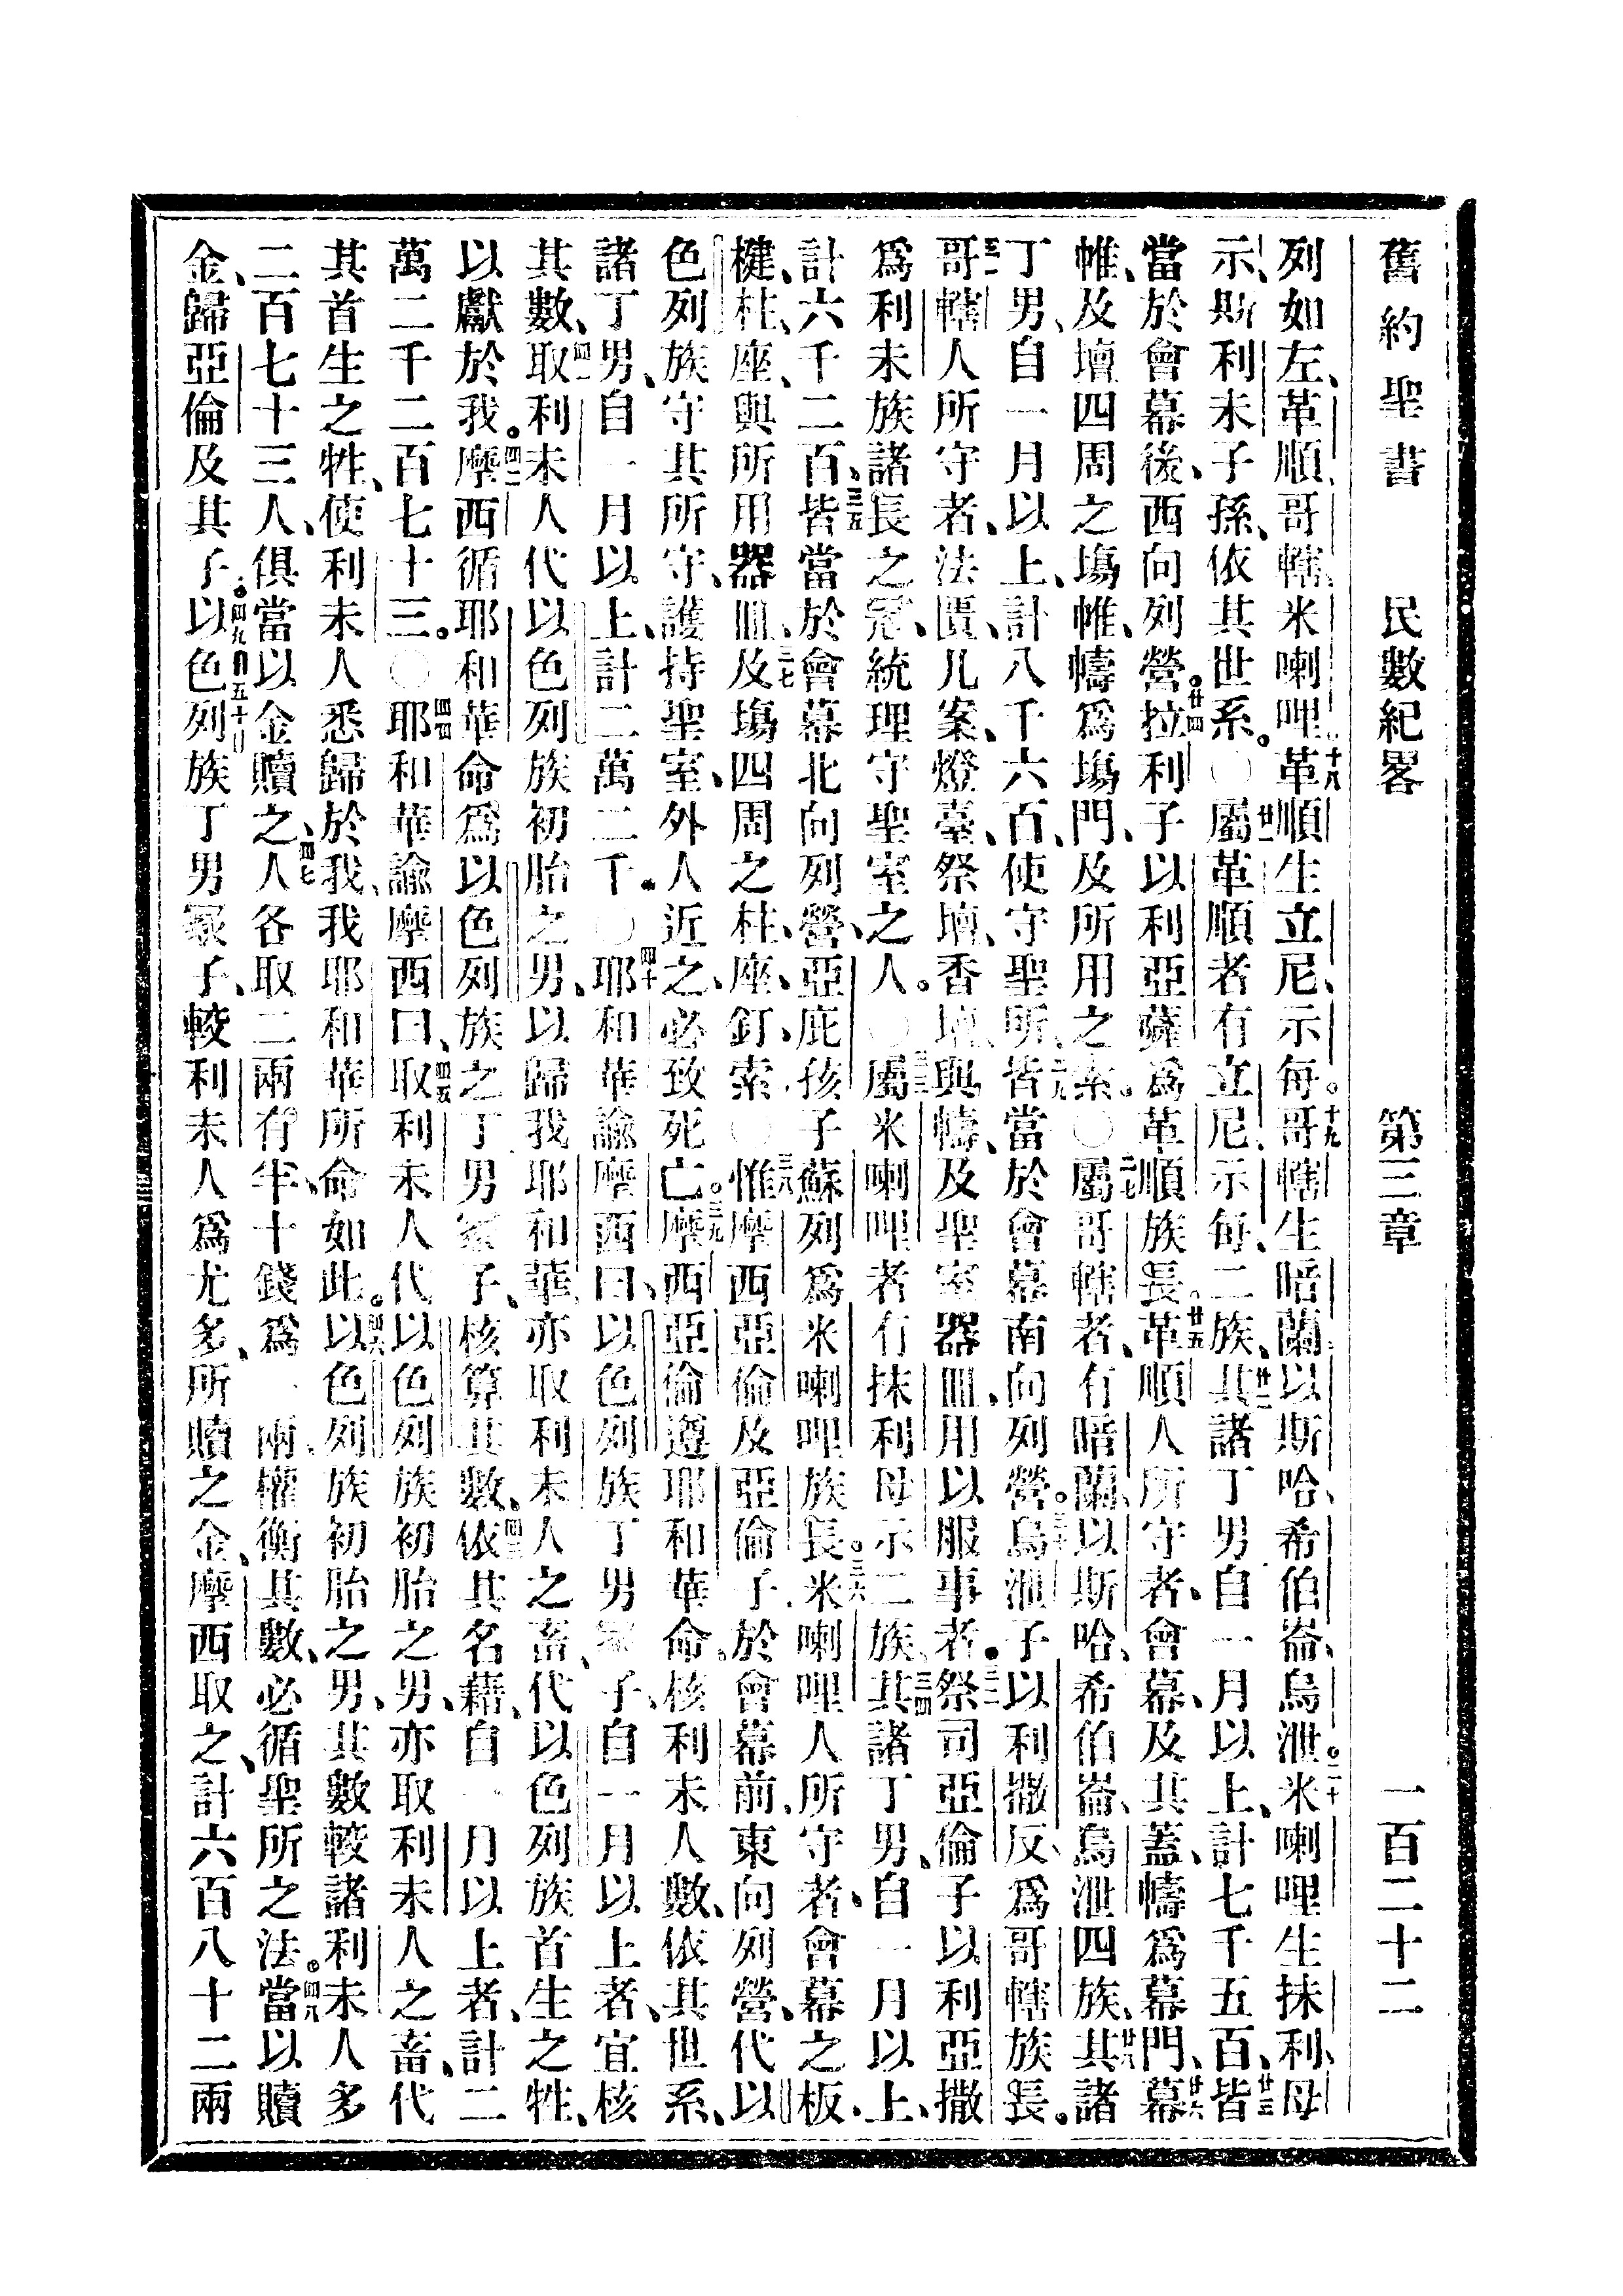 舊約聖書 民數紀畧 第三章 一百二十二
列如左、革順、哥轄、米喇哩、十八革順生立尼、示每。十九哥轄生暗蘭、以斯哈、希伯崙、烏泄。二十米喇哩生抹利、母
示、斯利未子孫、依其世系。〇廿一屬革順者有立尼、示每、二族、廿二其諸丁男自一月以上、計七千五百、廿三皆
當於會幕後、西向列營。廿四拉利子以利亞薩爲革順族長。廿五革順人所守者、會幕、及其蓋、幬爲幕門、廿六幕
帷、及壇四周之塲帷、幬爲塲門、及所用之索。〇二七屬哥轄者、有暗蘭、以斯哈、希伯崙、烏泄四族、廿八其諸
丁男、自一月以上、計八千六百、使守聖所、二九皆當於會幕南向列營。三十烏泄子以利撒反、爲哥轄族長。
三一哥轄人所守者、法匱、几案、燈臺、祭壇、香壇、與幬、及聖室器皿、用以服事者。三二祭司亞倫子以利亞撒
爲利未族諸長之冠、統理守聖室之人。〇三三屬米喇哩者有抹利母示二族、三四其諸丁男、自一月以上、
計六千二百、三五皆當於會幕北向列營、亞庇孩子蘇列爲米喇哩族長。三六米喇哩人所守者、會幕之板、
楗、柱、座、與所用器皿、三七及塲四周之柱、座、釘、索〇三八惟摩西亞倫及亞倫子、於會幕前、東向列營、代以
色列族守其所守、護持聖室、外人近之、必致死亡。三九摩西亞倫遵耶和華命、核利未人數、依其世系、
諸丁男、自一月以上、計二萬二千。〇四十耶和華諭摩西曰、以色列族丁男冢子、自一月以上者、宜核
其數、四一取利未人代以色列族初胎之男、以歸我耶和華、亦取利未人之畜、代以色列族首生之牲、
以獻於我。四二摩西循耶和華命、爲以色列族之丁男冢子、核算其數。四三依其名藉、自一月以上者、計二
萬二千二百七十三。〇四四耶和華諭摩西曰、四五取利未人代以色列族初胎之男、亦取利未人之畜、代
其首生之牲、使利未人悉歸於我、我耶和華所命如此。四六以色列族初胎之男、其數較諸利未人多
二百七十三人、俱當以金贖之、四七人各取二兩有半、十錢爲一兩、權衡其數、必循聖所之法。四八當以贖
金、歸亞倫及其子。四九自五十以色列族丁男冢子、較利未人爲尤多、所贖之金、摩西取之、計六百八十二兩